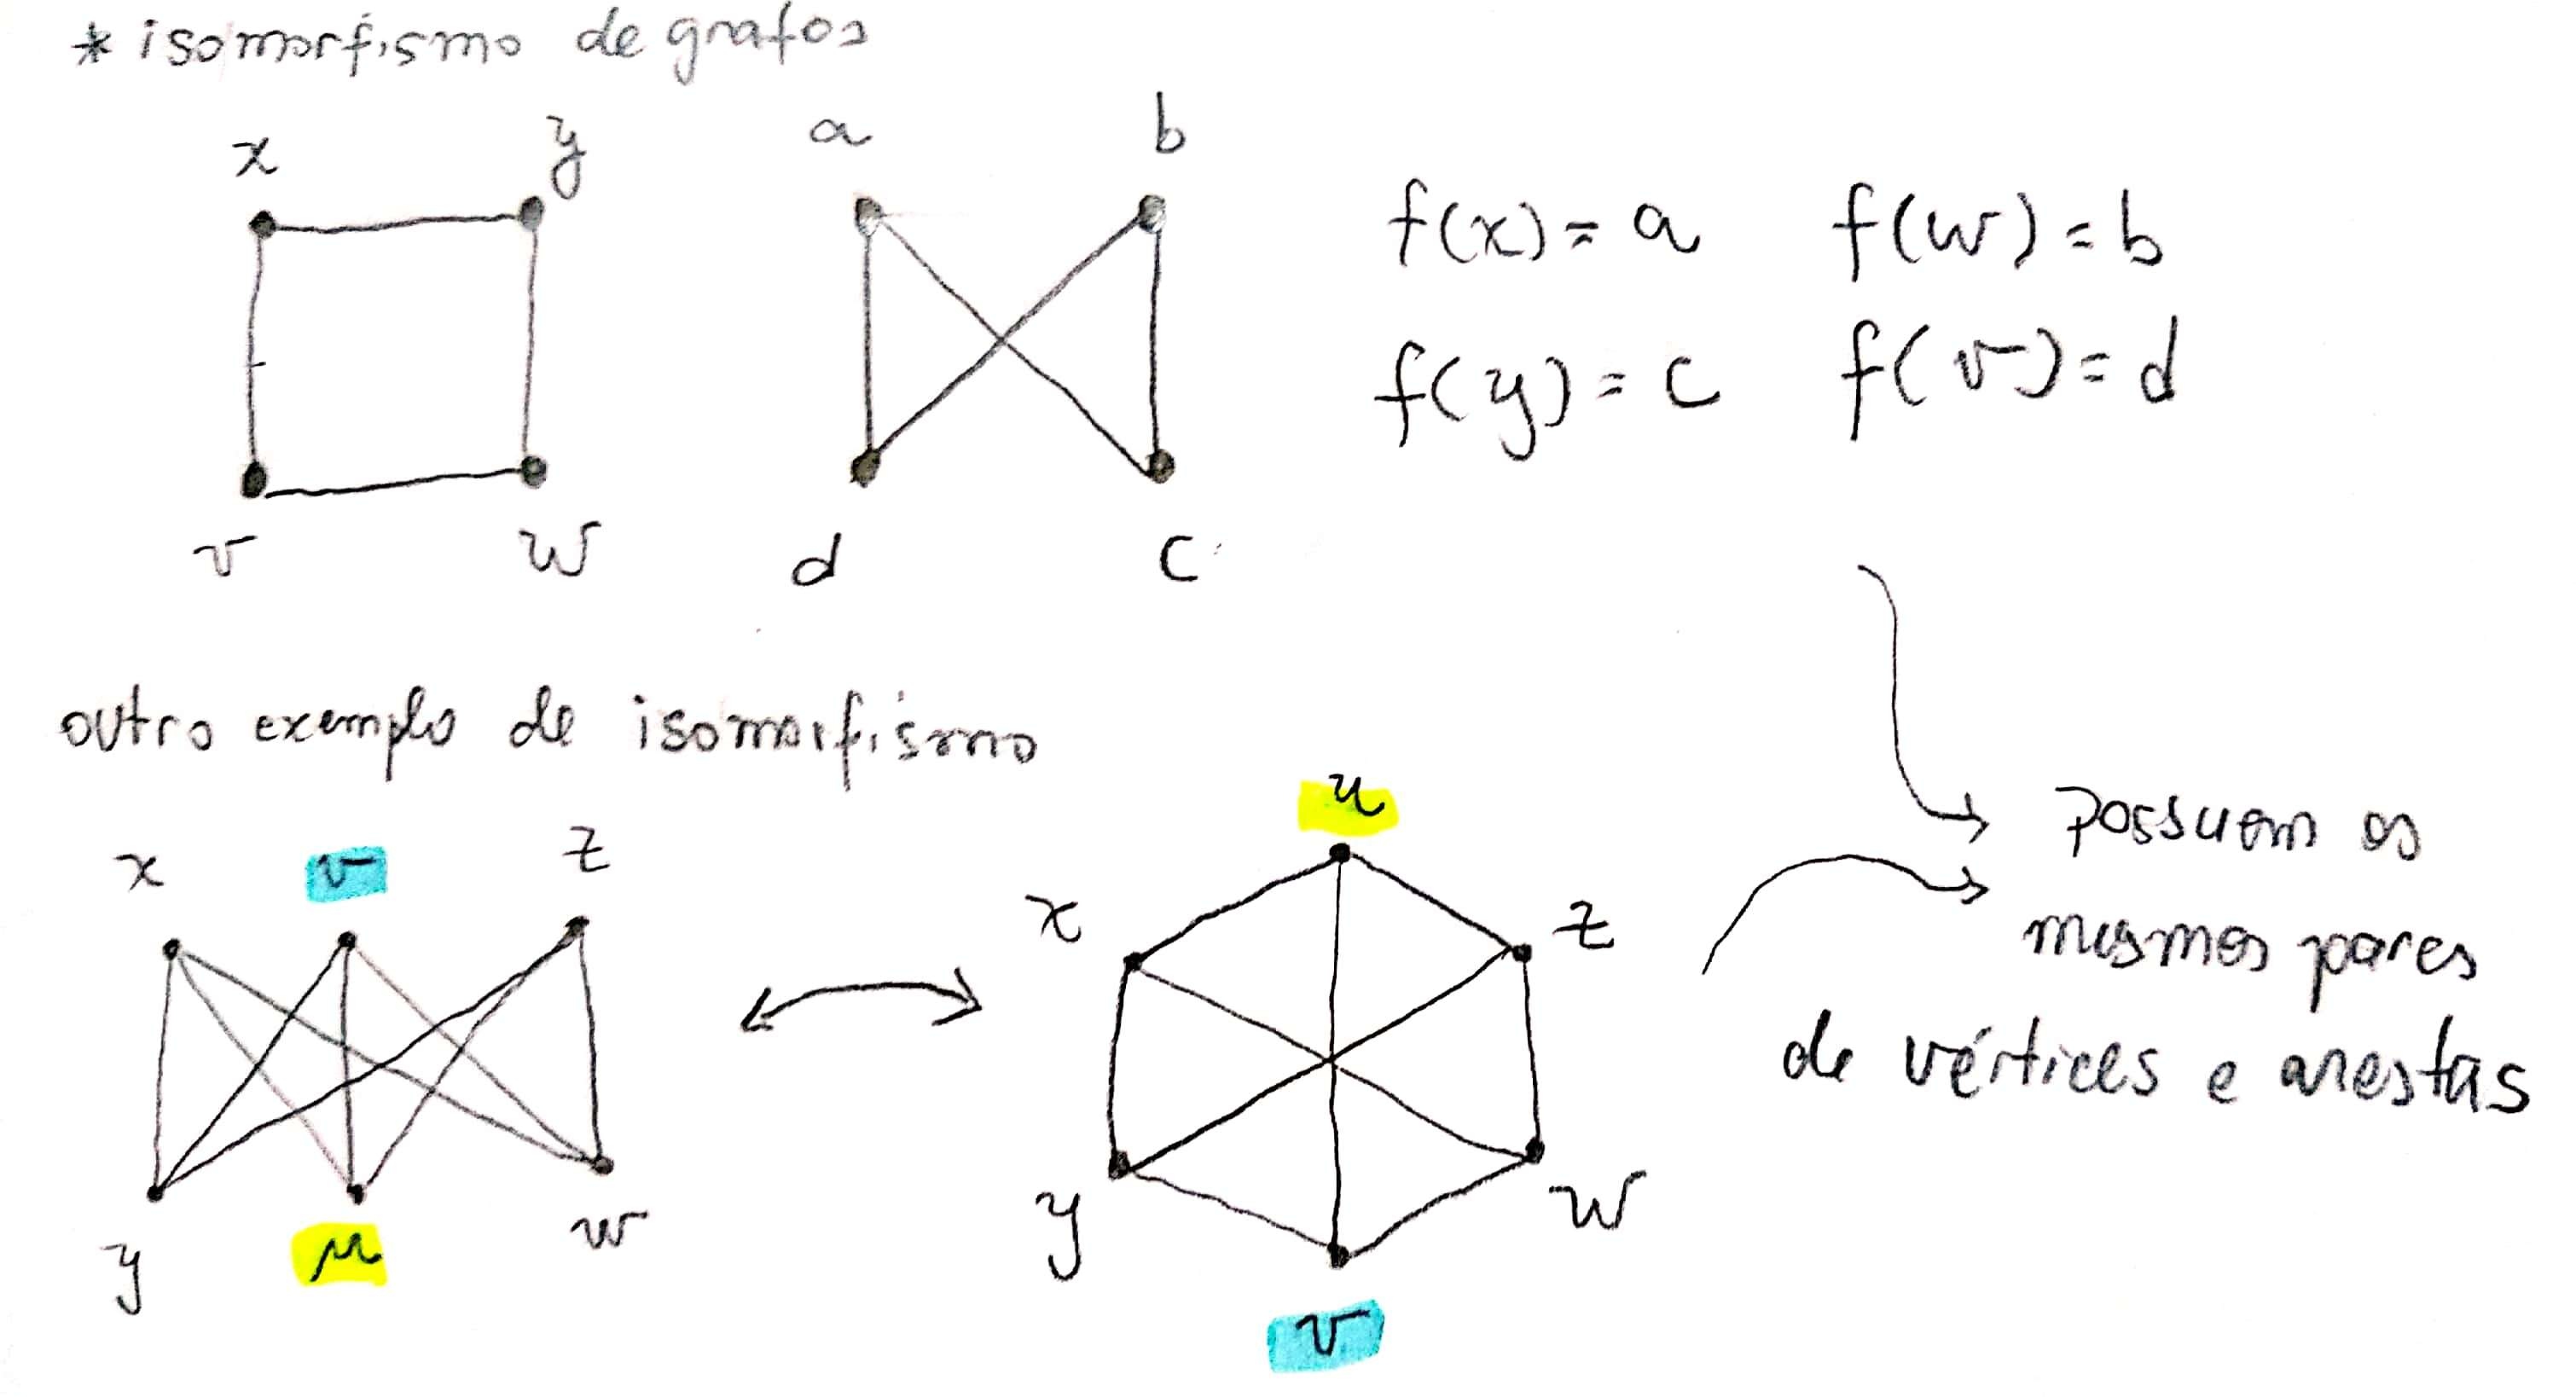 * isomorfismo de grafos
x y a b
f(x) = a f(w) = b
f(y) = c f(v) = d
v w d c
outro exemplo de isomorfismo
u
x v z
x z
y u w
y w
v
possuem os
mesmos pares
de vértices e arestas